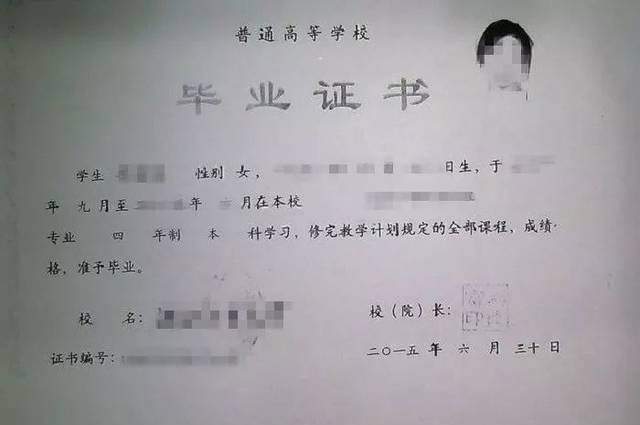 普通高等学校
毕业证书
学生 性别 女， 日生，于
年 九 月至 年 月在本校
专业 四 年制 本 科学习，修完教学计划规定的全部课程，成绩
格，准予毕业。
校 名：
校（院）长：
证书编号：
二〇一五 年 六 月 三十 日